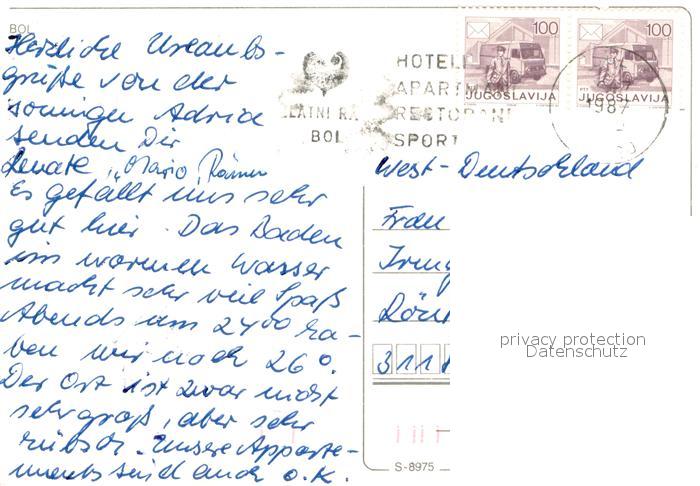 BOL
Herzliche Urlaubs-
grüße von der
sonnigen Adria
senden Dir
Renate, Mario,
Es gefällt uns sehr
gut hier. Das Baden
im warmen Wasser
macht sehr viel Spaß
Abends um 24⁰⁰ ha-
ben wir noch 26°.
Der Ort ist zwar nicht
sehr groß, aber sehr
hübsch. Unsere Apparte-
ments sind auch o.K.
100
100
PTT JUGOSLAVIJA
PTT JUGOSLAVIJA
HOTELI
APARTMA
RESTORANI
SPORT
ZLATNI RA
BOL
1987
West-Deutschland
Frau
Irmg
311
S-8975
privacy protection
Datenschutz